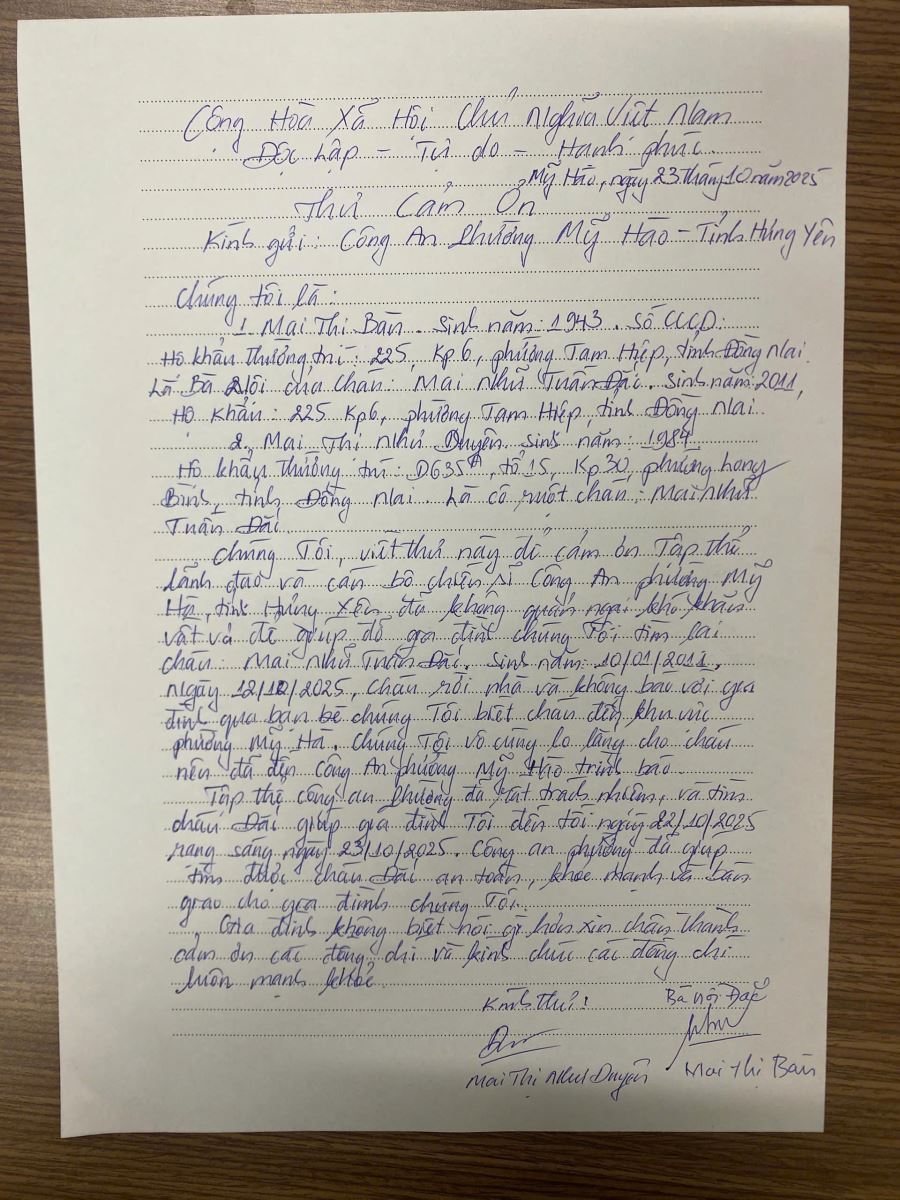 Cộng Hòa Xã Hội Chủ Nghĩa Việt Nam
Độc Lập - Tự do - Hạnh phúc.
Mỹ Hào, ngày 23 tháng 10 năm 2025
Thư Cảm Ơn
Kính gửi: Công An Phường Mỹ Hào - Tỉnh Hưng Yên
Chúng tôi là:
1. Mai Thị Bàn. Sinh năm: 1943. Số CCCD:
Hộ khẩu thường trú: 225, Kp6, phường Tam Hiệp, tỉnh Đồng Nai
Là Bà Nội của cháu: Mai Như Tuấn Đại. Sinh năm: 2011,
Hộ khẩu: 225 Kp6, phường Tam Hiệp, tỉnh Đồng Nai.
2. Mai Thị Như Duyên, sinh năm: 1984
Hộ khẩu thường trú: D635A, tổ 15, Kp.30, phường Long
Bình, tỉnh Đồng Nai. Là cô ruột cháu: Mai Như
Tuấn Đại.
Chúng Tôi, viết thư này để cảm ơn Tập thể
lãnh đạo và cán bộ chiến sĩ Công An phường Mỹ
Hà, tỉnh Hưng Yên đã không quản ngại khó khăn
vất vả để giúp đỡ gia đình chúng Tôi tìm lại
cháu: Mai Như Tuấn Đại. Sinh năm: 10/01/2011.
Ngày 12/10/2025, Cháu rời nhà và không báo với gia
đình qua bạn bè chúng Tôi biết cháu đến khu vực
phường Mỹ Hà. Chúng Tôi vô cùng lo lắng cho cháu
nên đã đến Công An phường Mỹ Hào trình báo.
Tập thể công an Phường đã rất trách nhiệm, và tìm
cháu Đại giúp gia đình Tôi đến tối ngày 22/10/2025
rạng sáng ngày 23/10/2025. Công an phường đã giúp
tìm được cháu Đại an toàn, khỏe mạnh và bàn
giao cho gia đình chúng Tôi.
Gia đình không biết nói gì hơn xin chân thành
cảm ơn các đồng chí và kính chúc các đồng chí
luôn mạnh khỏe.
Kính thư!
Bà nội
Mai Thị Như Duyên
Mai Thị Bàn